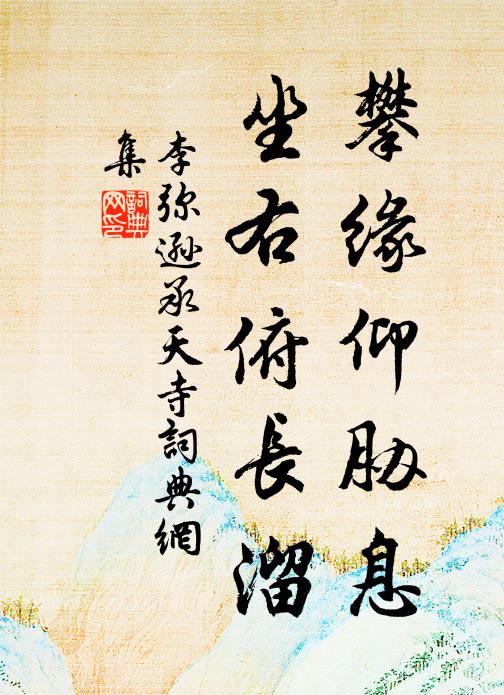 攀缘仰胁息
坐右俯長溜
李弥遜承天寺詞典網
集
詞典
网印